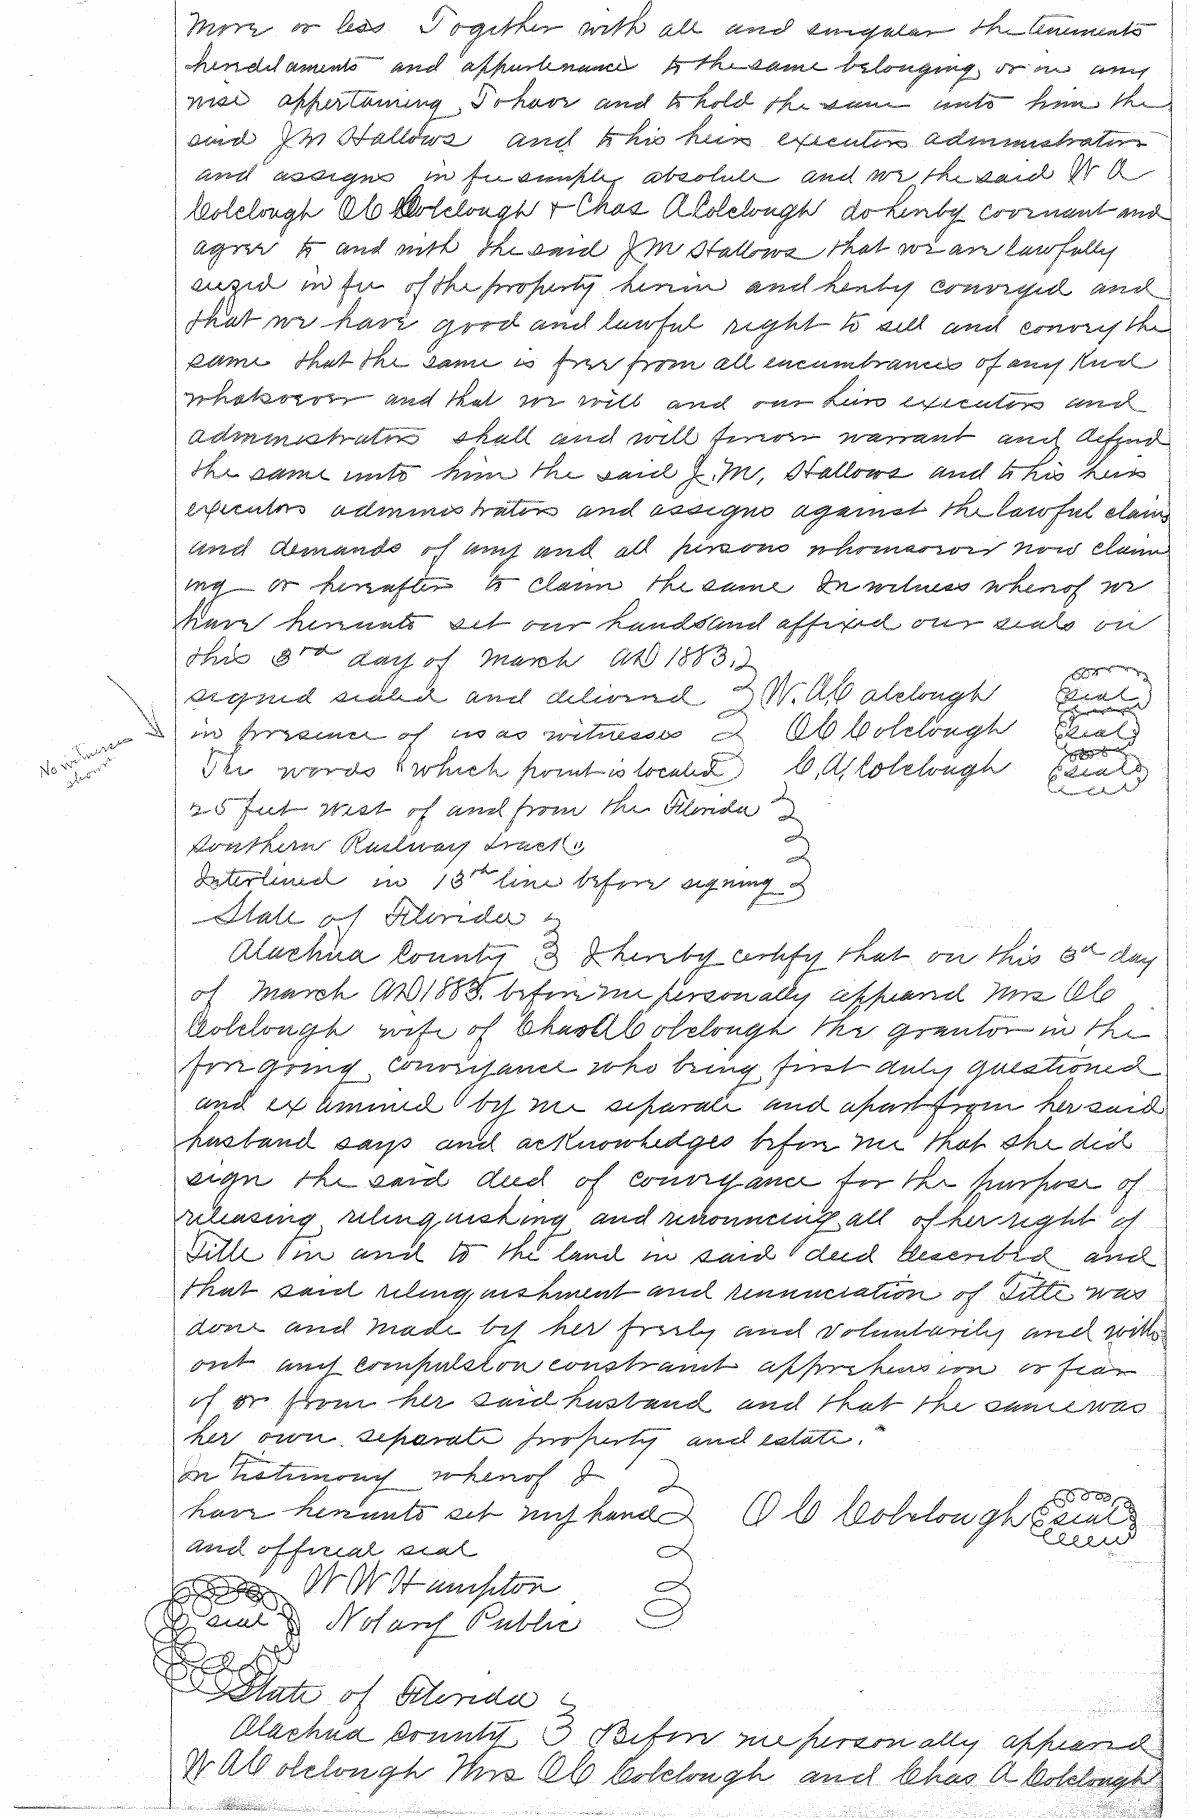 More or less Together with all and singular the tenements
herdilaments and appurtenance to the same belonging or in any
wise appertaining To have and to hold the same unto him the
said J M Hallows and to his heirs executors administrators
and assigns in fee simple absolute and we the said W A
Colclough O C Colclough & Chas A Colclough do hereby covenant and
agree to and with the said J M Hallows that we are lawfully
seized in fee of the property herein and hereby conveyed and
that we have good and lawful right to sell and convey the
same that the same is free from all encumbrances of any kind
whatsoever and that we will and our heirs executors and
administrators shall and will forever warrant and defend
the same unto him the said J. M. Hallows and to his heirs
executors administrators and assigns against the lawful claims
and demands of any and all persons whomsoever now claim
ing or hereafter to claim the same In witness whereof we
have hereunto set our hands and affixed our seals on
this 3rd day of March AD 1883.
signed sealed and delivered W. A. Colclough seal
in presence of us as witnesses O C Colclough seal
No witnesses
shown
The words "which point is located C. A. Colclough seal
25 feet west of and from the Florida
Southern Railway track"
Interlined in 13th line before signing
State of Florida
Alachua County I hereby certify that on this 3d day
of March AD 1883. before me personally appeared Mrs O C
Colclough wife of Chas A Colclough the grantor in the
foregoing conveyance who being first duly questioned
and examined by me separate and apart from her said
husband says and acknowledges before me that she did
sign the said deed of conveyance for the purpose of
releasing relinquishing and renouncing all of her right of
Title in and to the land in said deed described and
that said relinquishment and renunciation of Title was
done and made by her freely and voluntarily and with
out any compulsion constraint apprehension or fear
of or from her said husband and that the same was
her own separate property and estate."
In Testimony whereof I
have hereunto set my hand O C Colclough seal
and official seal
W W Hampton
seal Notary Public
State of Florida
Alachua County Before me personally appeared
W A Colclough Mrs O C Colclough and Chas A Colclough